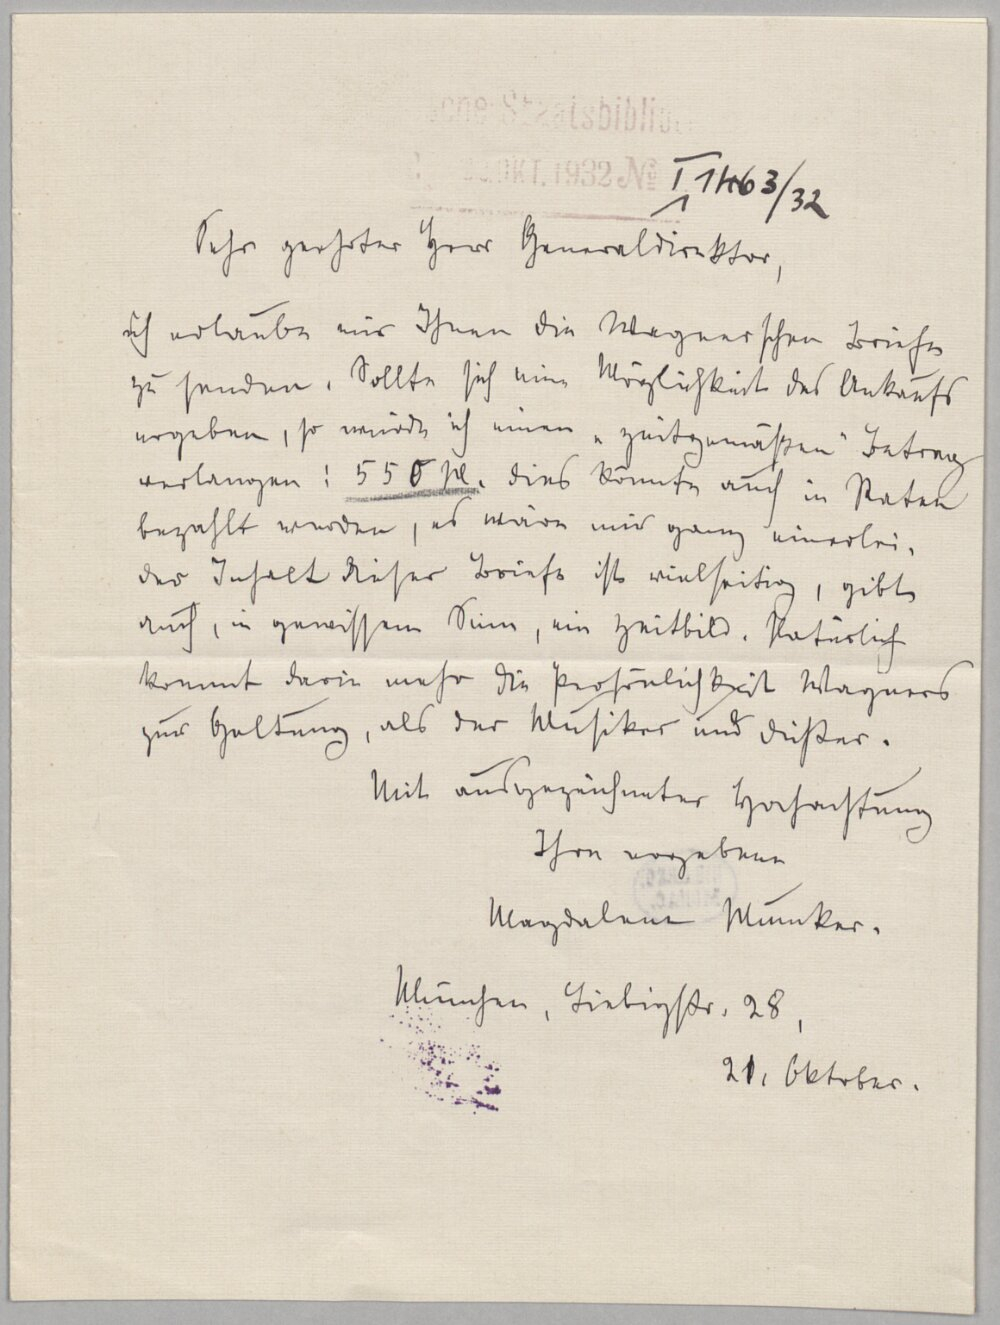 Staatsbiblio
OKT. 1932 №
I 1463/32
Sehr geehrter Herr Generaldirektor,
ich erlaube mir Ihnen die Wagnerschen Briefe
zu senden. Sollte sich eine Möglichkeit des Ankaufs
ergeben, so würde ich einen „zeitgemäßen“ Betrag
verlangen: 550 M. dies könnte auch in Raten
bezahlt werden, es wäre mir ganz einerlei.
der Inhalt dieser Briefe ist vielseitig, gibt
auch, in gewissem Sinn, ein Zeitbild. Natürlich
kommt darin mehr die Persönlichkeit Wagners
zur Geltung, als der Musiker und Dichter.
Mit ausgezeichneter Hochachtung
Ihre ergebene
Magdalena Muncker.
München, Liebigstr. 28,
21. Oktober.